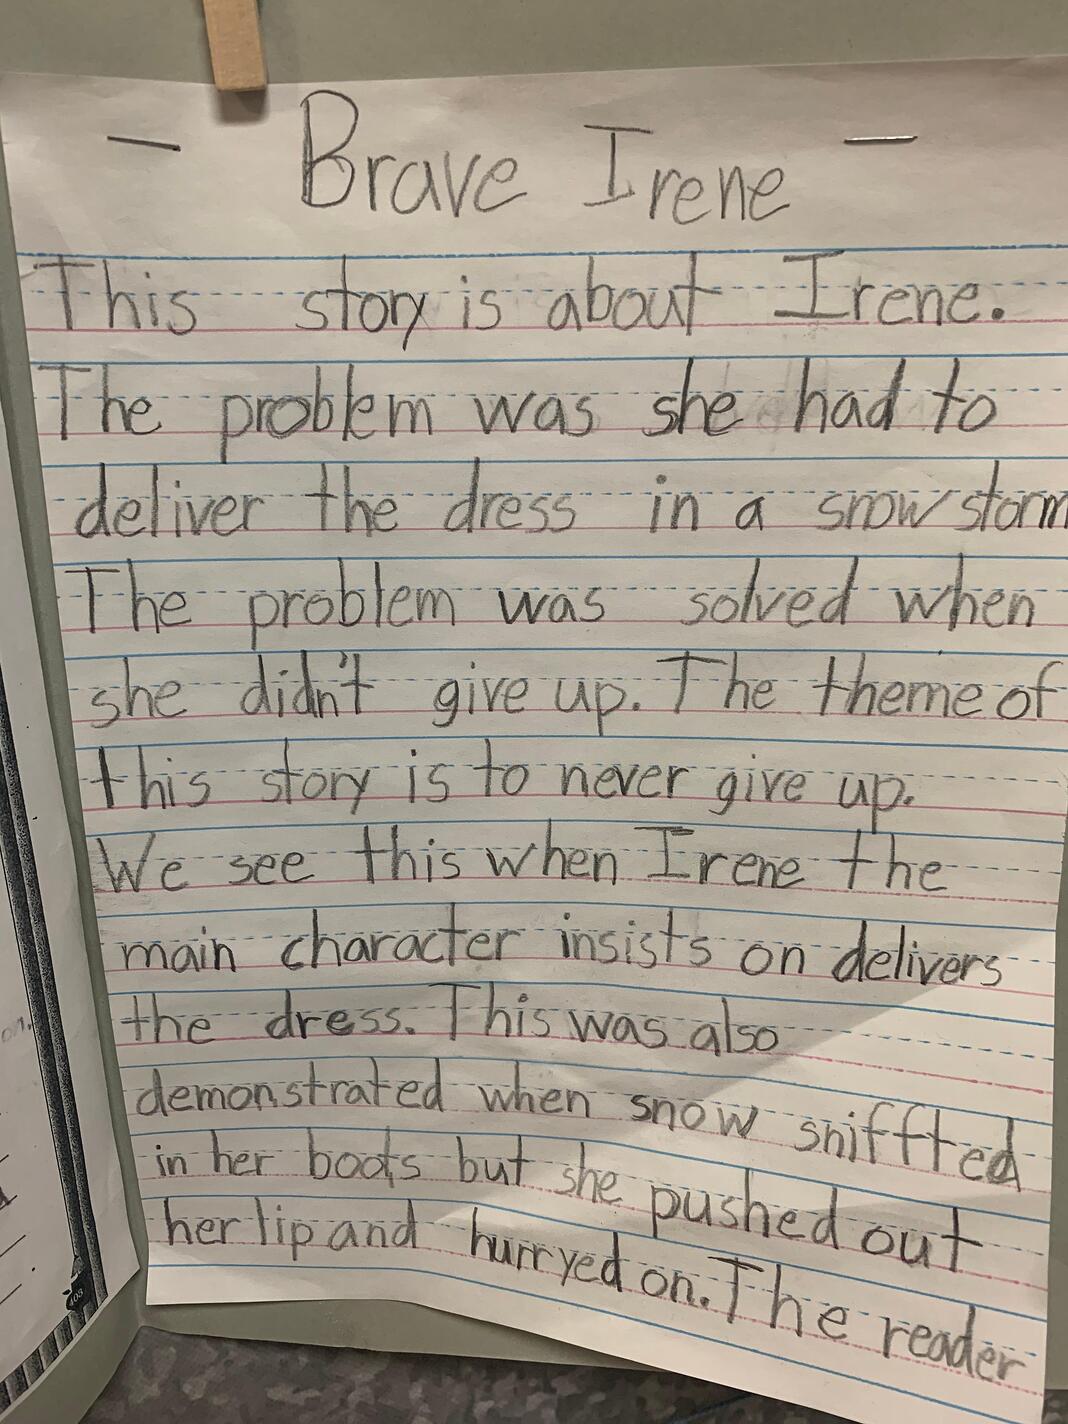 Brave Irene
This story is about Irene.
The problem was she had to
deliver the dress in a snowstorm
The problem was solved when
she didn't give up. The theme of
this story is to never give up.
We see this when Irene the
main character insists on delivers
the dress. This was also
demonstrated when snow sniffted
in her boots but she pushed out
her lip and hurryed on. The reader
on,
103